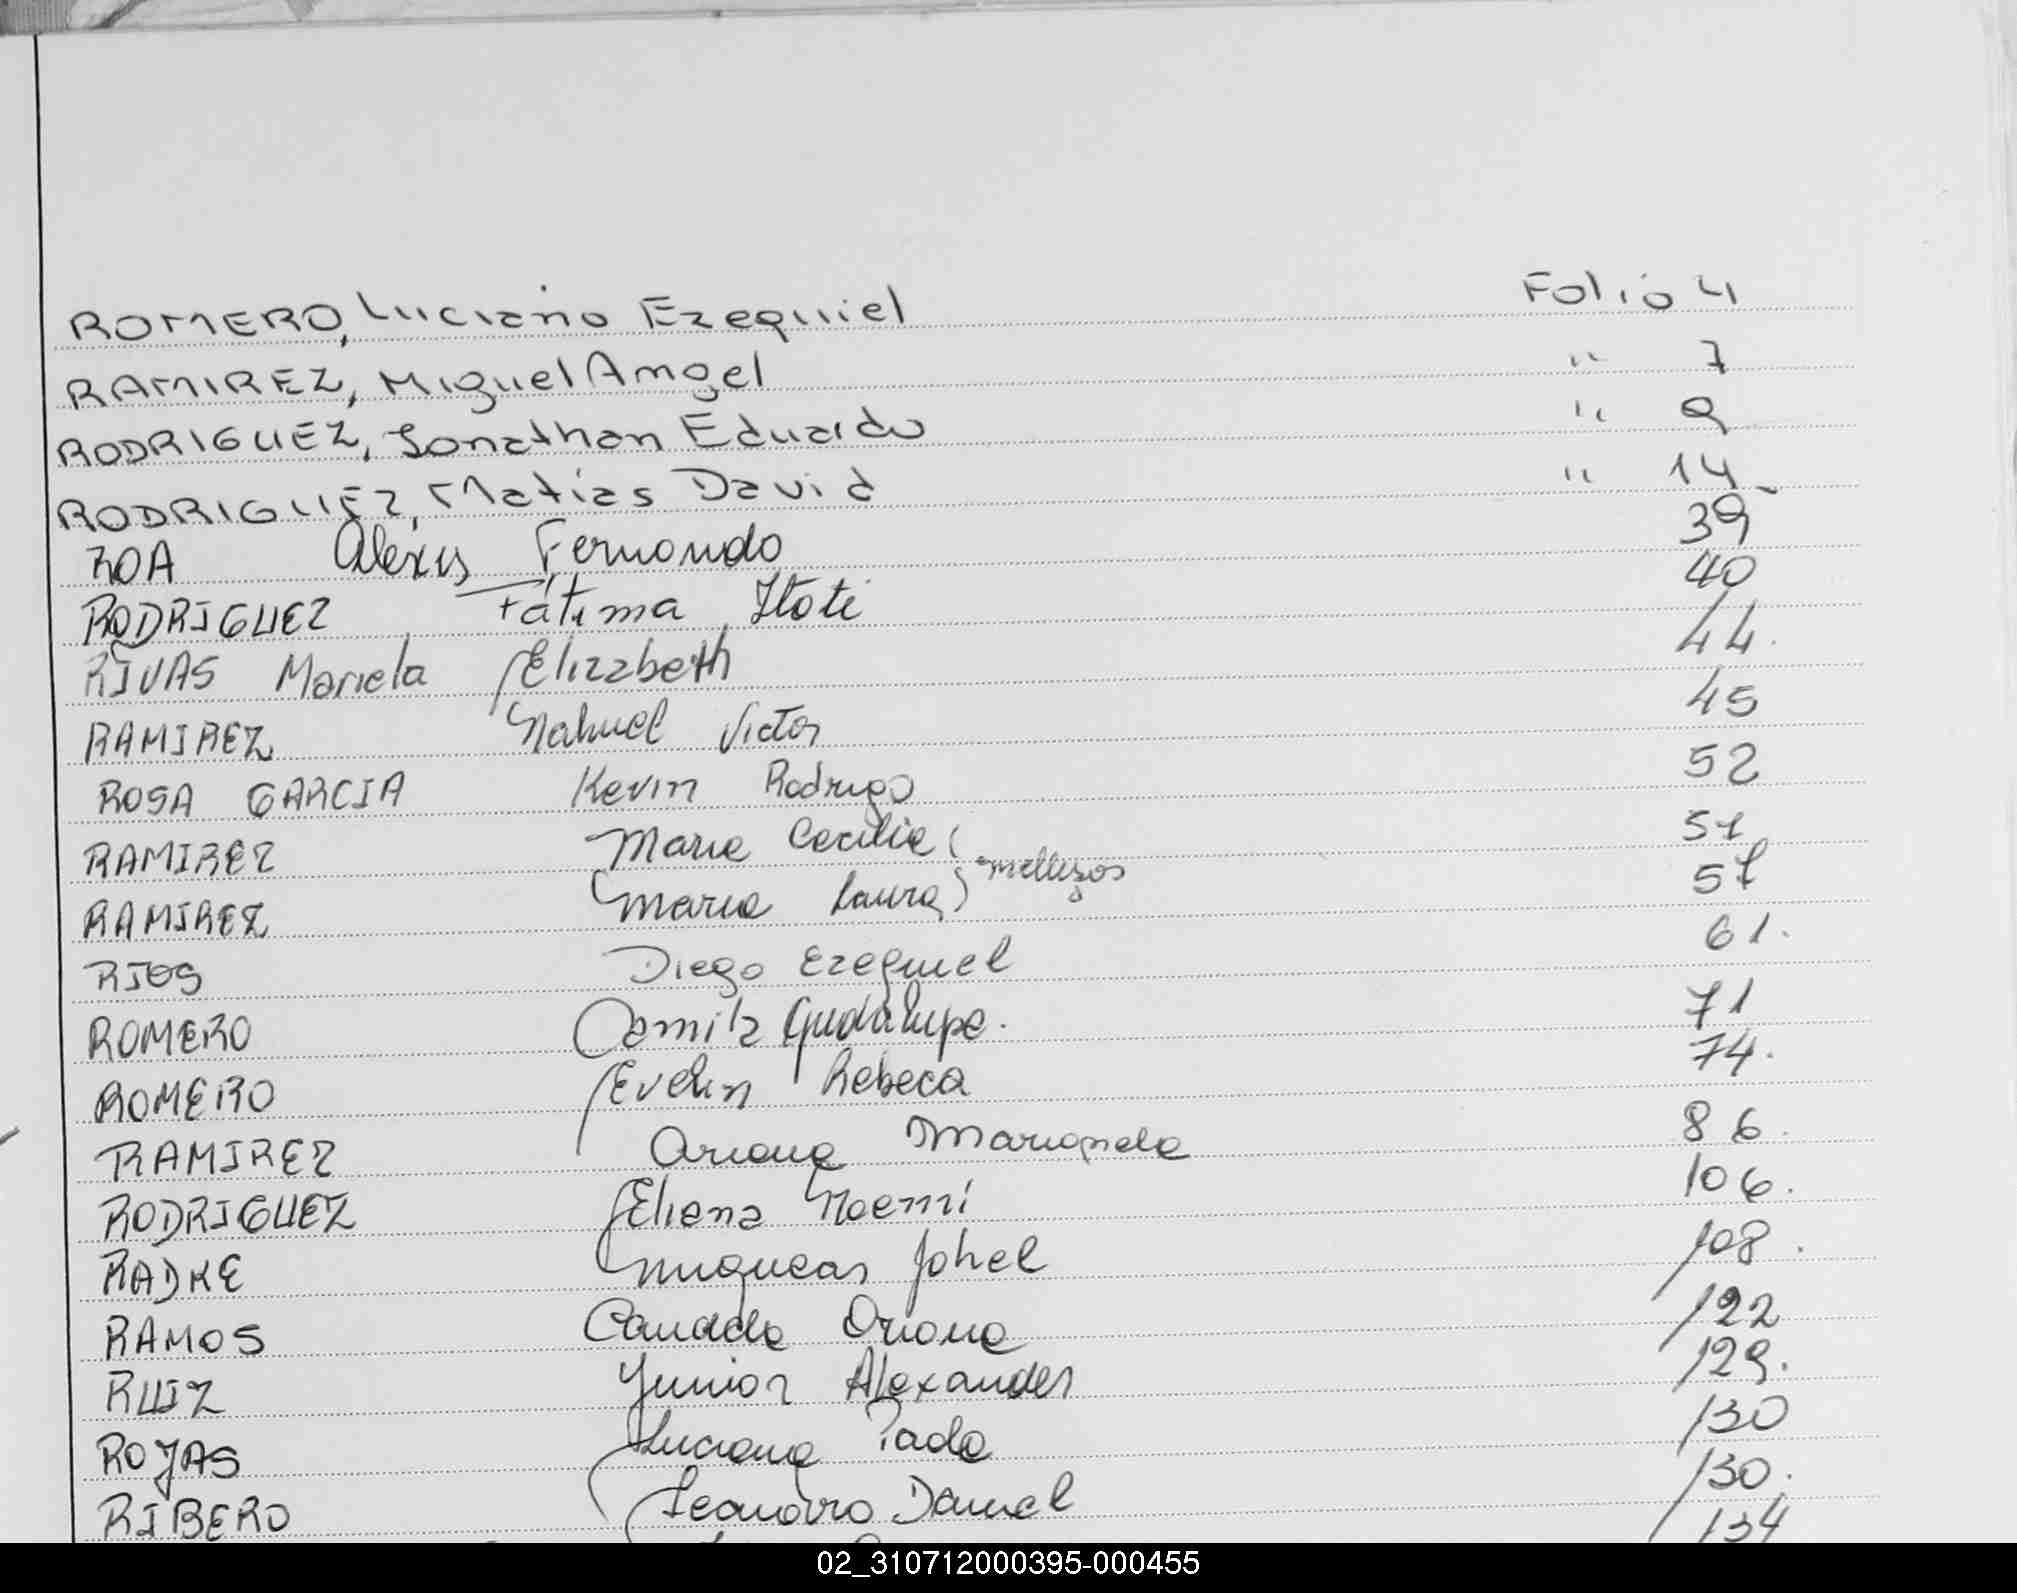 ROMERO, Luciano Ezequiel Folio 4
RAMIREZ, Miguel Angel " 7
RODRIGUEZ, Jonathan Eduardo " 9
RODRIGUEZ, Matías David " 14
ROA Alexis Fernando 39
RODRIGUEZ Fátima Itatí 40
RIVAS Mariela Elizabeth 44.
RAMIREZ Nahuel Victor 45
ROSA GARCIA Kevin Rodrigo 52
RAMIREZ Maria Cecilia 57
mellizos
RAMIREZ Maria Laura 57
RIOS Diego Ezequiel 61.
ROMERO Camila Gudalupe. 71
ROMERO Evelin Rebeca 74.
RAMIREZ Oriana 86.
RODRIGUEZ Eliana Noemí 106.
RADKE Miqueas Johel 108.
RAMOS Candela Oriana 122
RUIZ Yunior Alexander 129.
ROJAS Luciana 130
RIBERO Leandro Daniel 130.
134
02_310712000395-000455